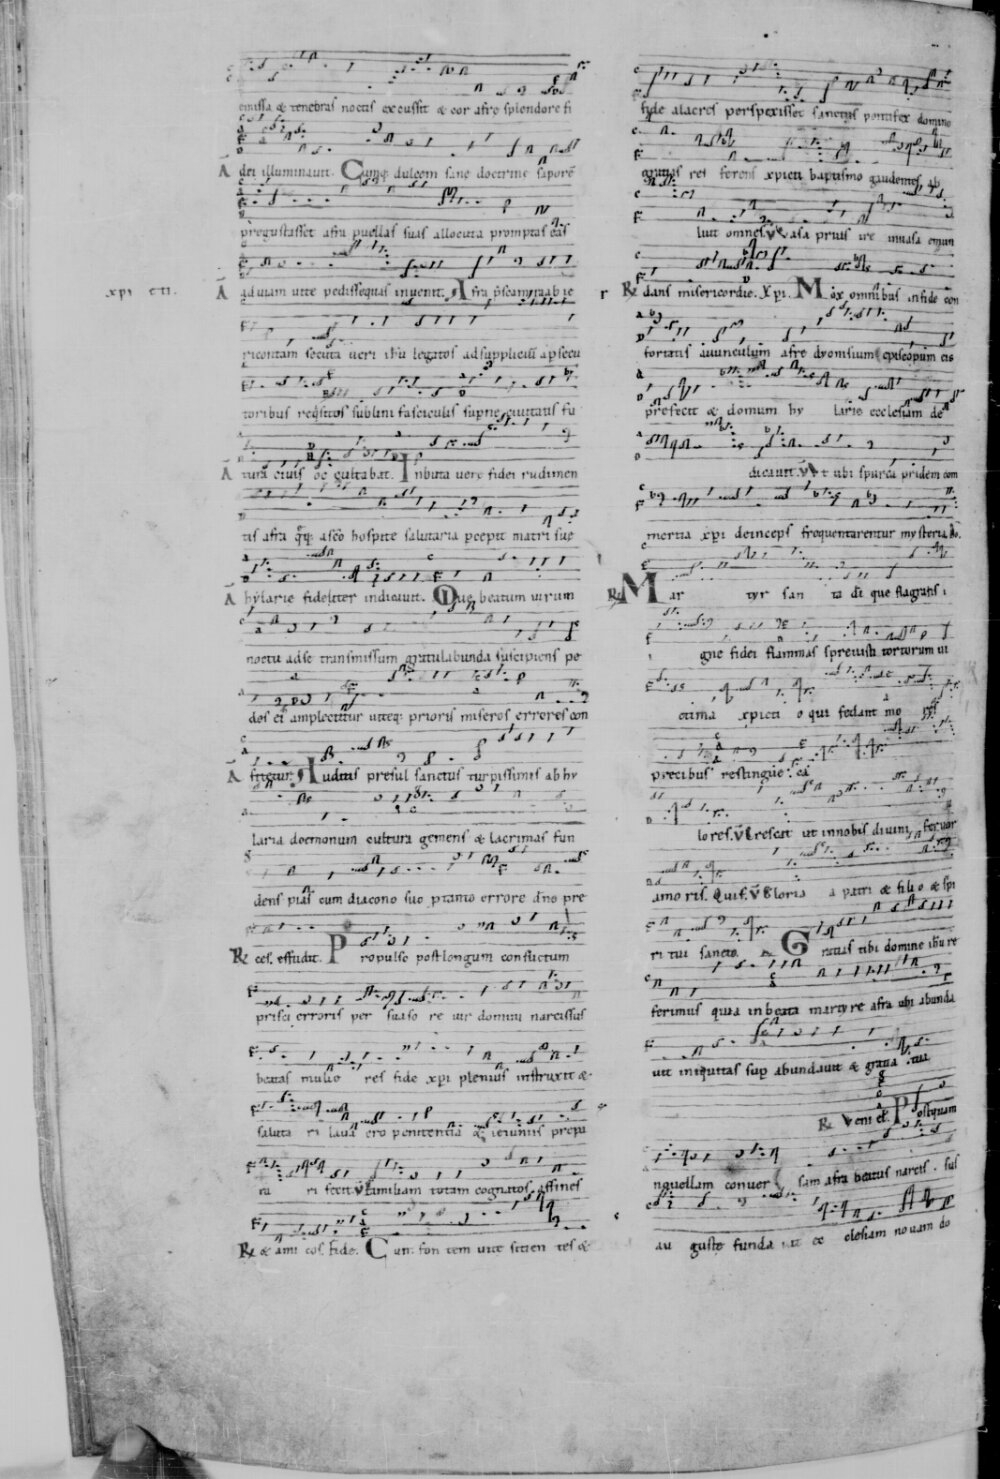 emissa & tenebras noctis excussit & cor afre splendore fi
dei illuminauit. Cumq; dulcem sane doctrine saporē
pregustasset afra puellas suas allocuta promptas eas
ad uiam uite pedissequas inuenit. Afra
xpi
ricontam secuta ueri ihu legatos ad suppliciū a psecu
toribus reqsitos sub lini fasciculis supne ciuitatis fu
tura ciuis occultabat. Inbuta uero fidei rudimen
tis afra asco hospite salutaria pcepit matri sue
hylarie fideliter indicauit. Que beatum uirum
noctu ad se transmissum gratulabunda suscipiens pe
dos ei amplectitur utteq; prioris miseros errores con
fitetur. Auditis presul sanctus turpissimis ab hy
laria doemonum cultura gemens & lacrimas fun
dens pias cum diacono suo ptanto errore dno pre
ces effudit. Propulso post longum consuetum
prisci erroris per suaso re uir domini narcissus
beatas mulie res fide xpi plenius instruxit &
saluta ri laua cro penitentia & ieiuniis prepa
ra ri fecit. V Familiam totam cognatos affines
R & ami cos fide. Cun. fon tem uite sitien tes &
fide alacres perspexisset sanctus pontifex domino
gratias res ferens xpicti baptismo gaudentes ab
luit omnes. V Vasa prius ire inuasa emun
R dans misericordie. Xpi. Mox omnibus in fide con
fortatis auunculum afre dyonisium episcopum eis
prefecit & domum hy larie ecclesiam de
dicauit. V Vt ubi spurca pridem com
mercia xpi deinceps frequentarentur mysteria. Do.
R Mar tyr san ta di que flagrantis i
gne fidei flammas spreuisti tortorum ui
ctima xpicti o qui fedant mo res
precibus restingue. ca
lores. V Crescat ut in nobis diuini feruor
amo ris. Qui f. V Gloria a patri & filio & spi
ri tui sancto. A Gratias tibi domine ihu re
ferimus quia in beata martyre afra ubi abunda
uit iniquitas sup abundauit & gratia tua
R Veni el. Postquam
nouellam conuer sam afra beatus narcis sus
au guste funda uit ec clesiam nouam do